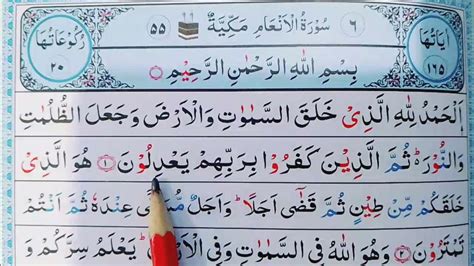 اٰيَاتُهَا ١٦٥ ٦ سُوْرَةُ الْاَنْعَامِ مَكِّيَّةٌ ٥٥ رُكُوْعَاتُهَا ٢٠
بِسْمِ اللّٰهِ الرَّحْمٰنِ الرَّحِيْمِ
اَلْحَمْدُ لِلّٰهِ الَّذِيْ خَلَقَ السَّمٰوٰتِ وَالْاَرْضَ وَجَعَلَ الظُّلُمٰتِ
وَالنُّوْرَ ثُمَّ الَّذِيْنَ كَفَرُوْا بِرَبِّهِمْ يَعْدِلُوْنَ ١ هُوَ الَّذِيْ
خَلَقَكُمْ مِّنْ طِيْنٍ ثُمَّ قَضٰٓى اَجَلًا ط وَاَجَلٌ عِنْدَهٗ ثُمَّ اَنْتُمْ
تَمْتَرُوْنَ ٢ وَهُوَ اللّٰهُ فِي السَّمٰوٰتِ وَفِي الْاَرْضِ يَعْلَمُ سِرَّكُمْ وَ